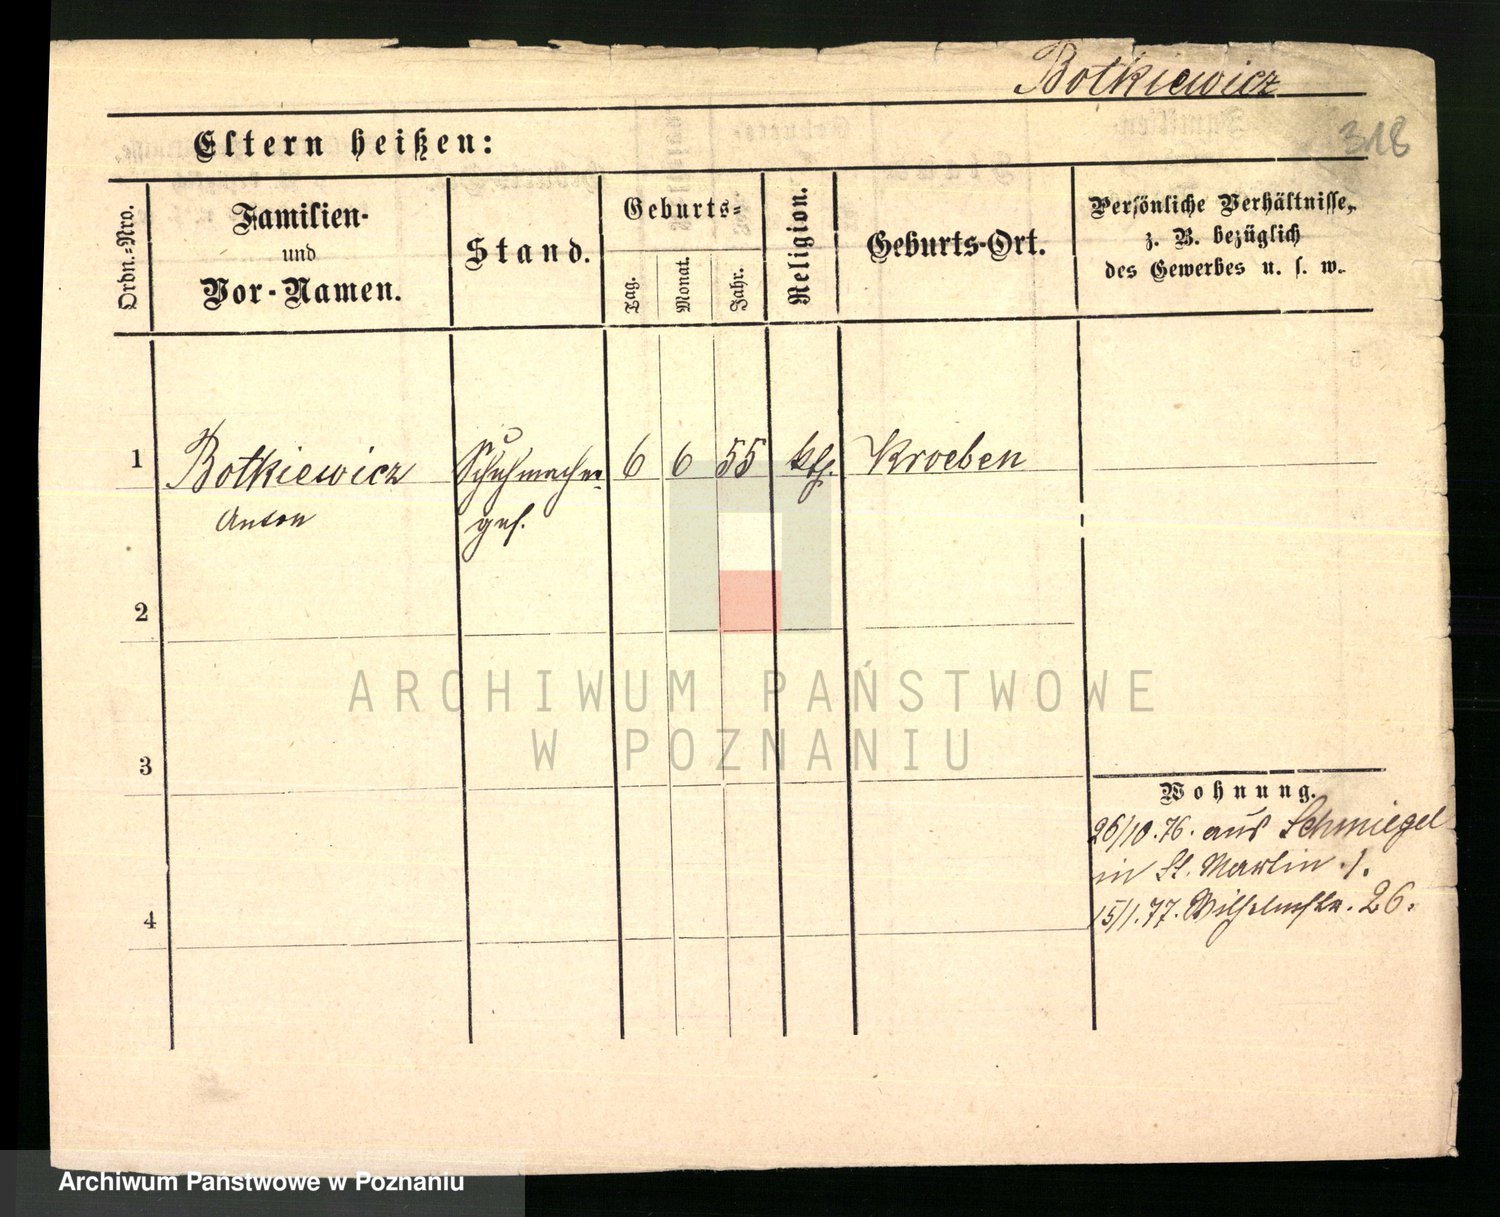 Botkiewicz
318
Eltern heißen:
Ordn.-Nro.
Familien-
und
Vor-Namen.
Stand.
Geburts-
Tag.
Monat.
Jahr.
Religion.
Geburts-Ort.
Persönliche Verhältnisse,
z. B. bezüglich
des Gewerbes u. s. w.
1 Botkiewicz Schuhmacher- 6 6 55 kth. Kroeben
Anton ges.
2
3
4
Wohnung.
26/10.76. aus Schmiegel
in St. Martin 1.
15/1.77. Wilhelmstr. 26.
ARCHIWUM PAŃSTWOWE
W POZNANIU
Archiwum Państwowe w Poznaniu